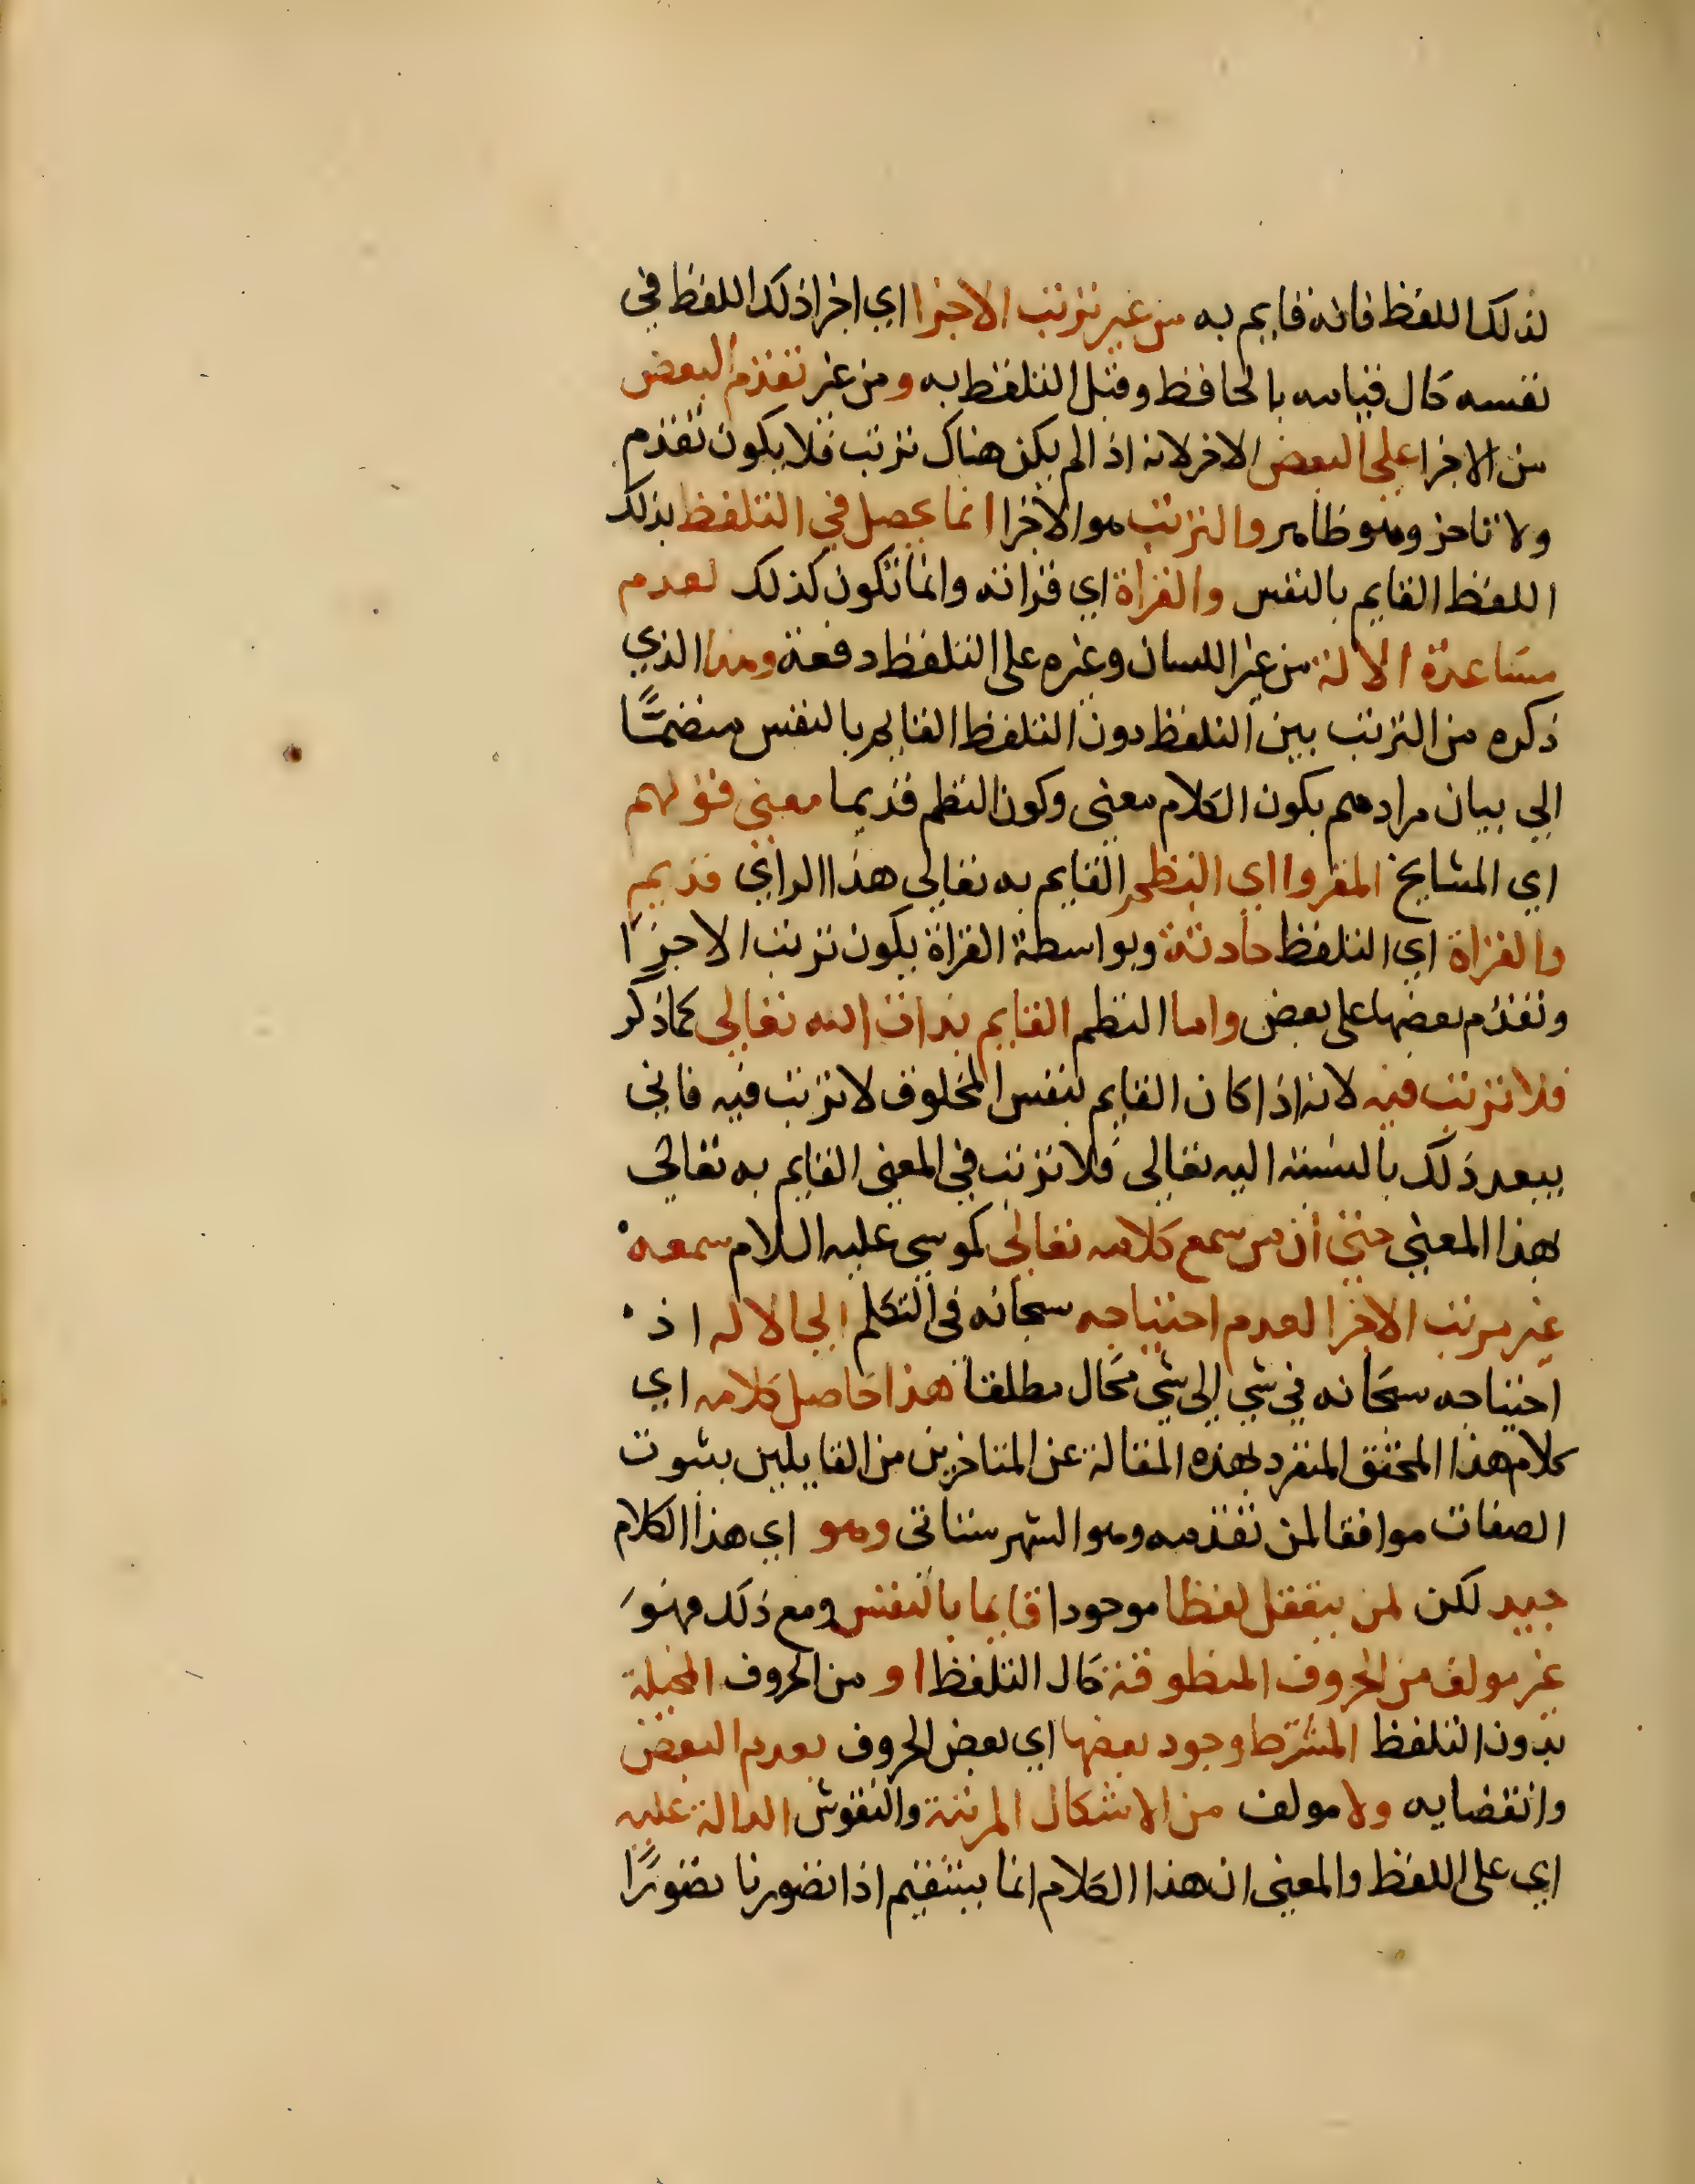 لذلك اللفظ فانه قايم به من غير ترتب الاجزا اي اجزا ذلك اللفظ في
نفسه حال قيامه بالحافظ وقبل التلفظ به ومن غير تقدم البعض
من الاجزا على البعض الاخر لانه اذا لم يكن هناك ترتب فلا يكون تقدم
ولا تاخر وهو ظاهر والترتب هو الاجزا انما يحصل في التلفظ بذلك
اللفظ القايم بالنفس والقراة اي قراته وانما تكون كذلك لعدم
مساعدة الالة من غير اللسان وغيره على التلفظ دفعة وهذا الذي
ذكره من الترتب بين التلفظ دون التلفظ القايم بالنفس منضمًّا
الي بيان مرادهم بكون الكلام معنى وكون النظم قديما معنى قولهم
اي المشايخ المقروا اي النظم القايم به تعالى هذا الراي قديم
والقراة اي التلفظ حادثة وبواسطة القراة يكون ترتب الاجزا
وتقدم بعضها على بعض واما النظم القايم بذات الله تعالى كما ذكر
فلا ترتب فيه لانه اذا كان القايم بنفس المخلوق لا ترتب فيه فاني
يبعد ذلك بالنسبة اليه تعالى فلا ترتب في المعنى القايم به تعالى
بهذا المعنى حتى ان من سمع كلامه تعالى كموسى عليه السلام سمعه
غير مرتب الاجزا لعدم احتياجه سبحانه في التكلم الى الاله اذ
احتياجه سبحانه في شي الى شي محال مطلقا هذا حاصل كلامه اي
كلام هذا المحقق المنفرد بهذه المقالة عن المتاخرين من القايلين بثبوت
الصفات موافقا لمن تقدمه وهو الشهرستاني وهو اي هذا الكلام
جيد لكن لمن يتعقل لفظا موجودا قايما بالنفس ومع ذلك فهو
غير مولف من الحروف المنطوقة حال التلفظ او من الحروف المخيلة
بدون التلفظ المشترط وجود بعضها اي بعض الحروف بعدم البعض
وانقضايه ولا مولف من الاشكال المرتبة والنقوش الدالة عليه
اي على اللفظ والمعنى ان هذا الكلام انما يستقيم اذا تصورنا تصورًا